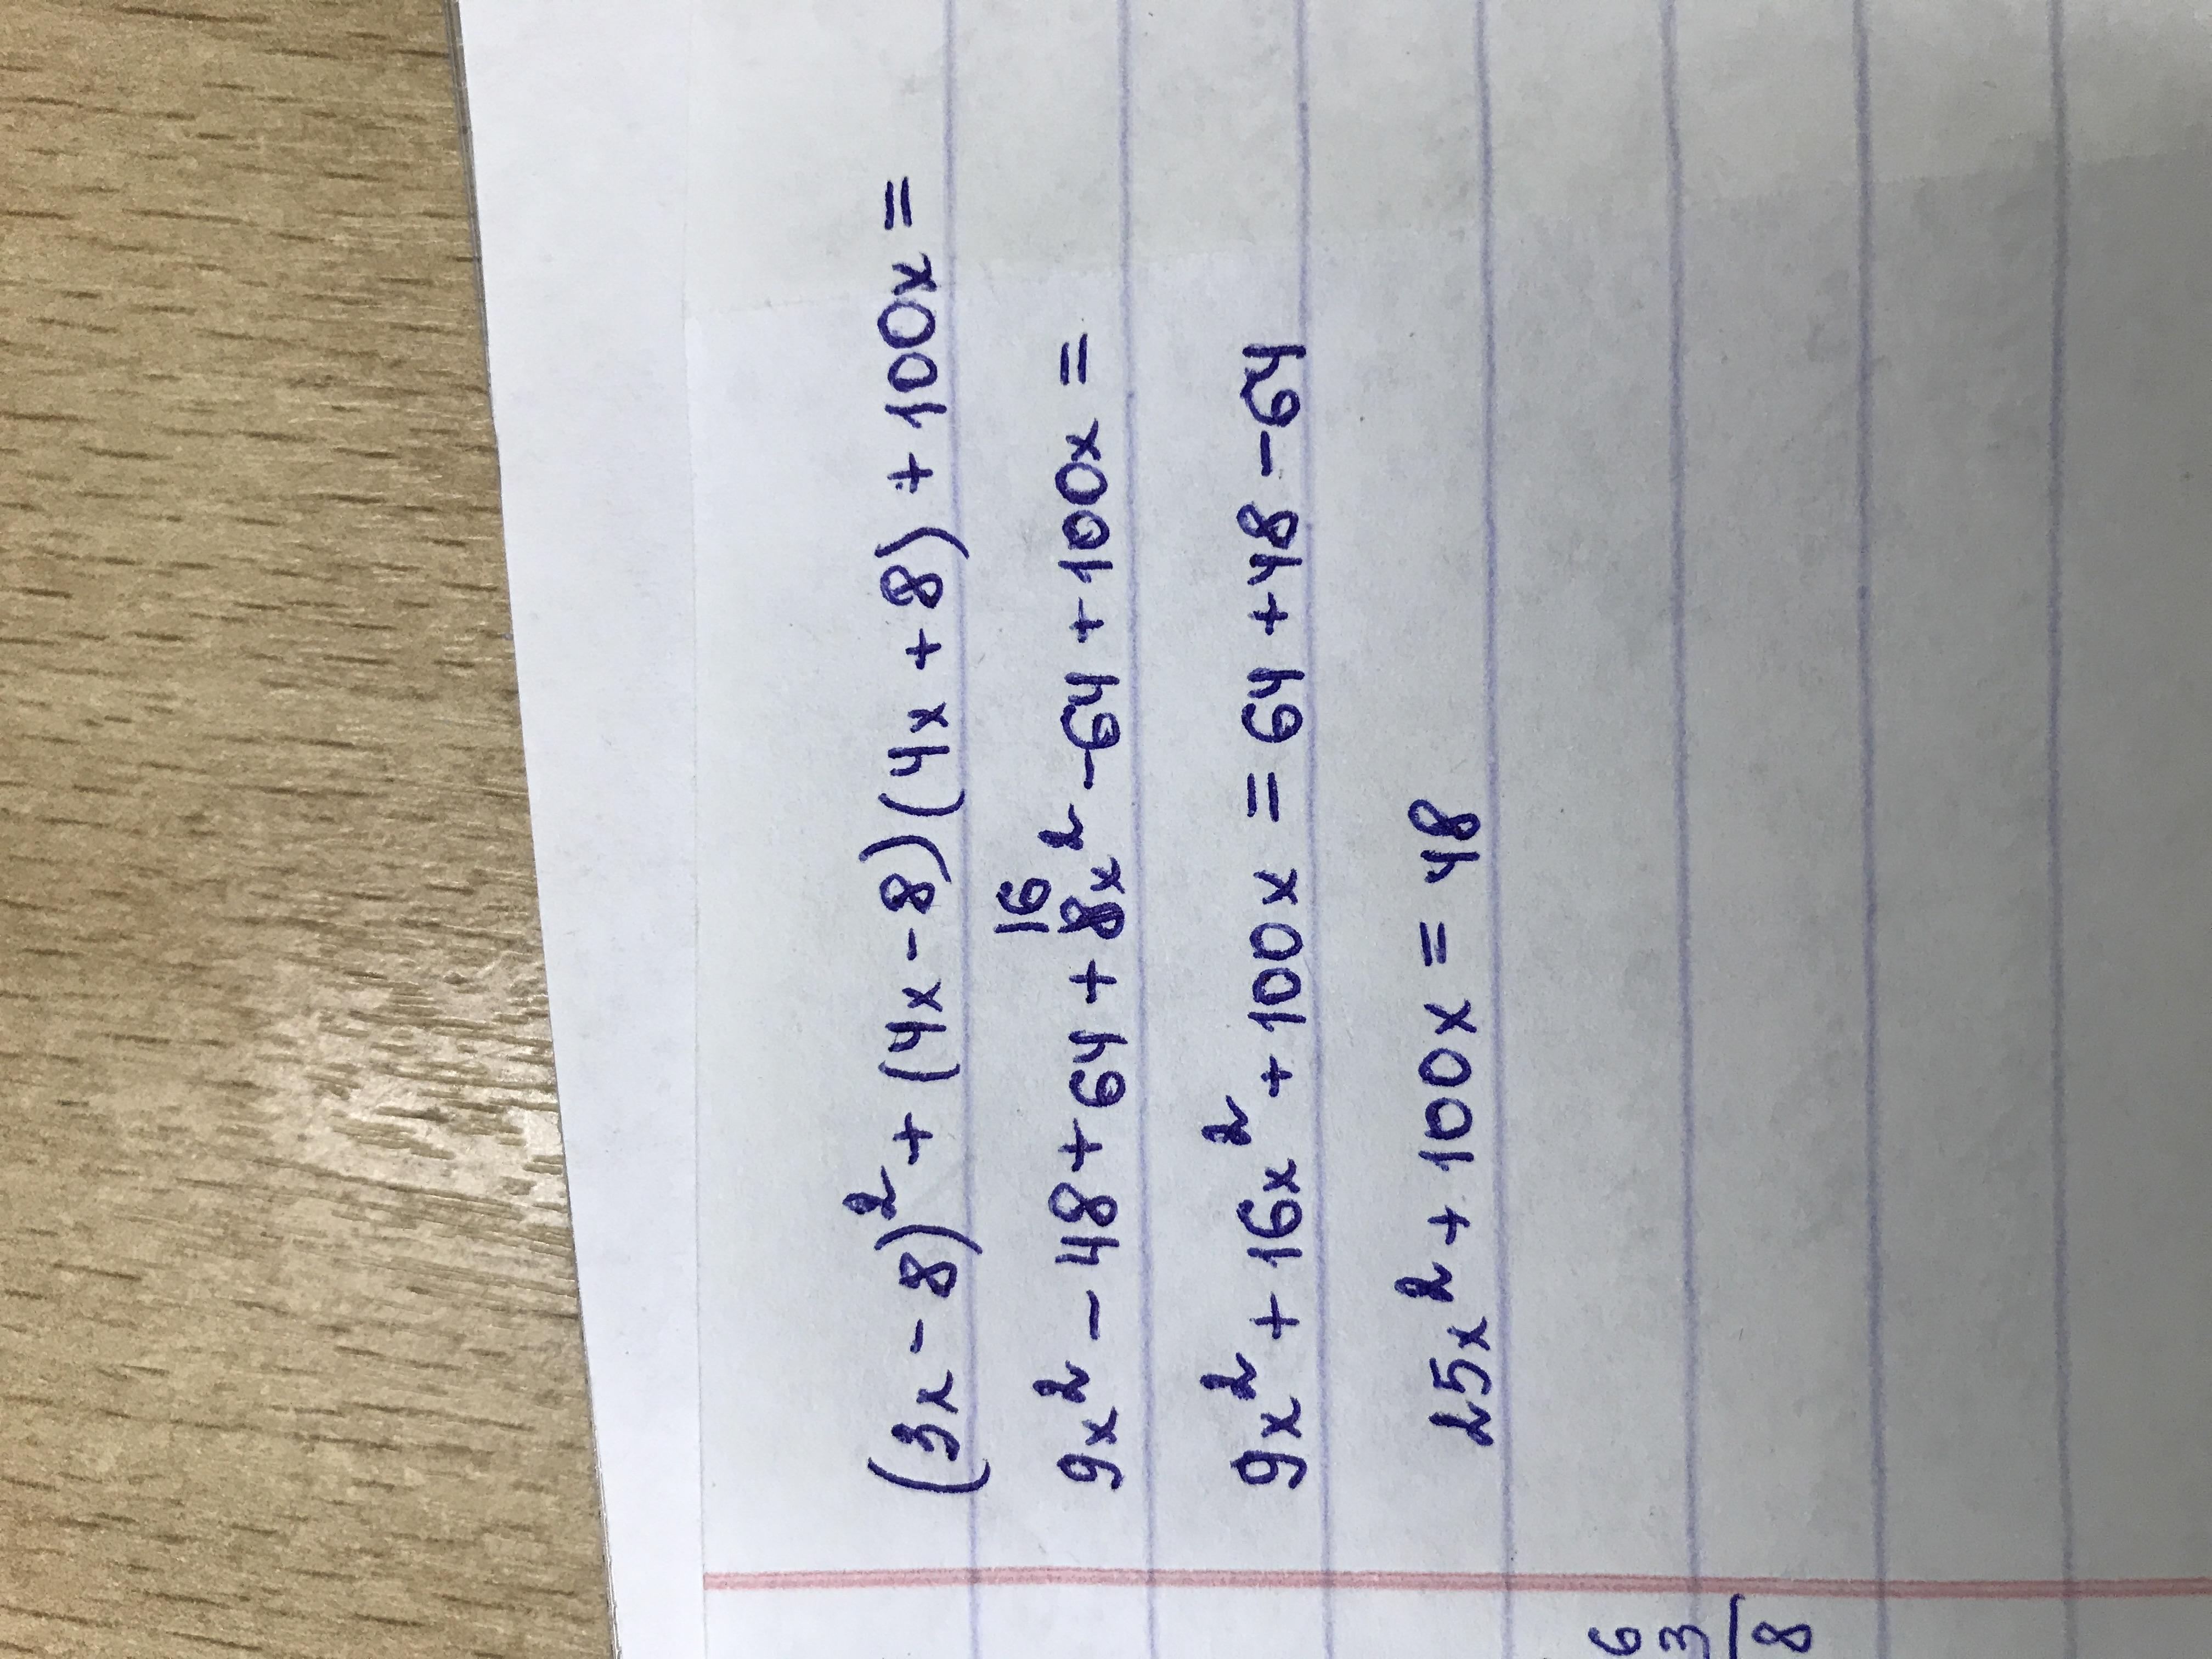 (3x-8)²+(4x-8)(4x+8)+100x=
16
9x²-48+64+8x²-64+100x=
9x²+16x²+100x=64+48-64
25x²+100x=48
6
3
8